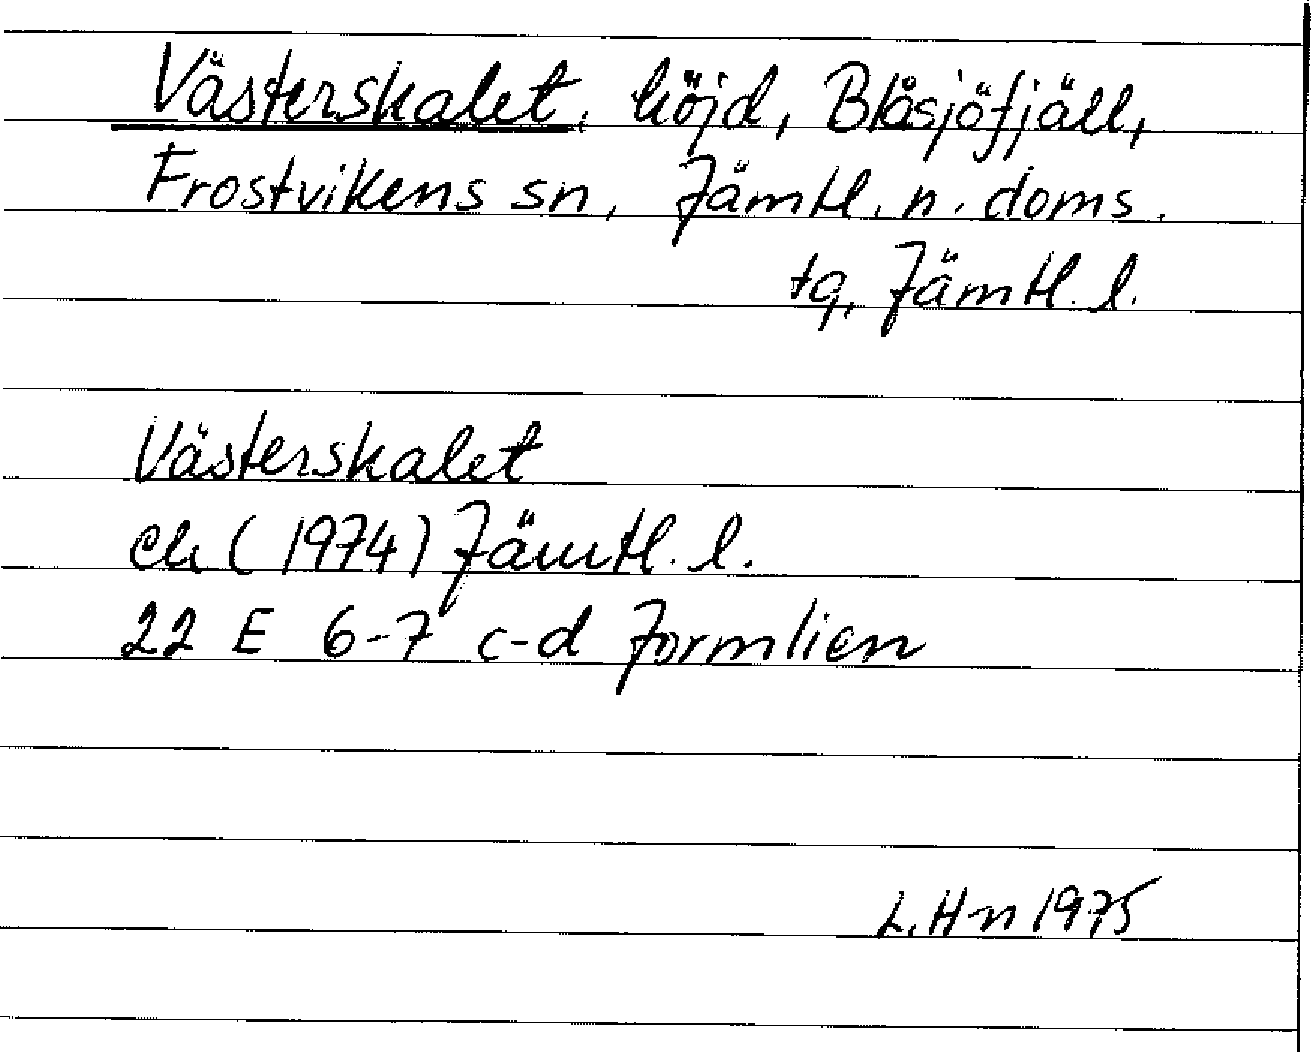 Västerskalet, höjd, Blåsjöfjäll,
Frostvikens sn, Jämtl. n. doms.
tq, Jämtl. l.
Västerskalet
ek (1974) Jämtl. l.
22 E 6-7 c-d Jormlien
L. H-n 1975